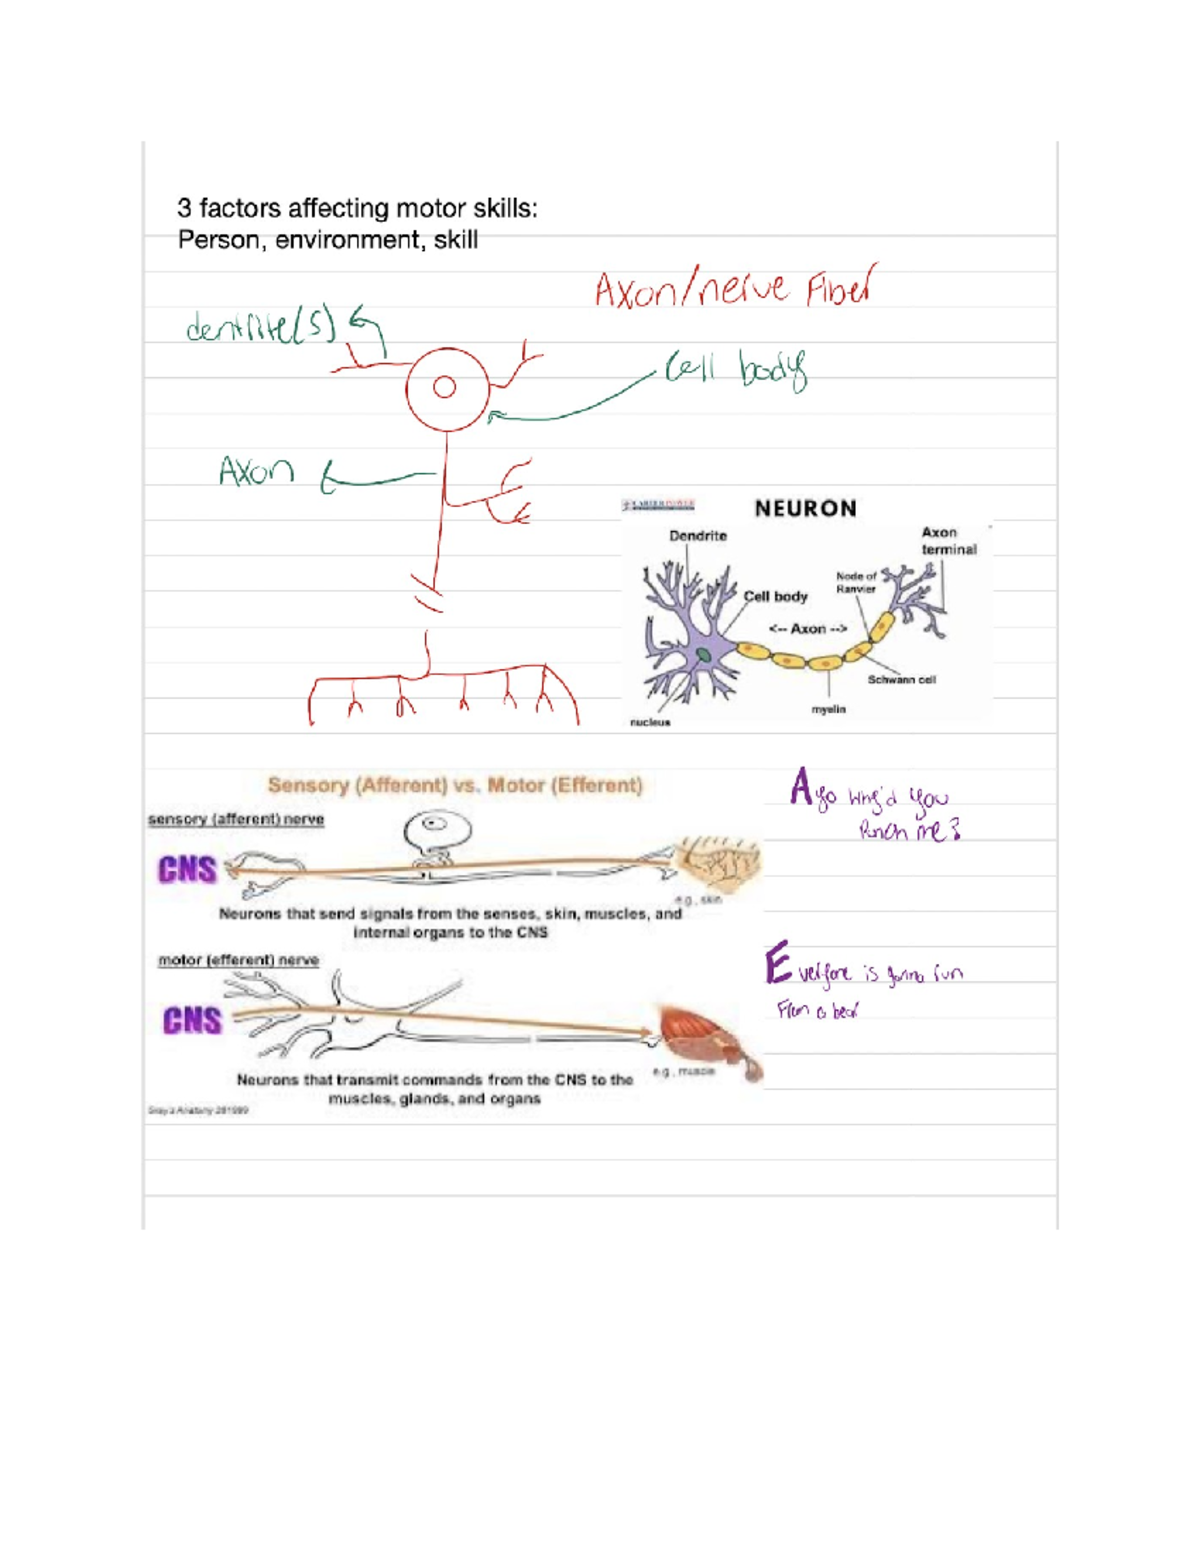 3 factors affecting motor skills:
Person, environment, skill
Axon/nerve Fiber
dentrite(s)
Cell body
Axon
NEURON
Dendrite
Axon
terminal
Node of
Ranvier
Cell body
<-- Axon -->
Schwann cell
myelin
nucleus
Sensory (Afferent) vs. Motor (Efferent)
sensory (afferent) nerve
CNS
e.g., skin
Neurons that send signals from the senses, skin, muscles, and
internal organs to the CNS
Ayo why'd you
Punch me?
motor (efferent) nerve
CNS
e.g., muscle
Neurons that transmit commands from the CNS to the
muscles, glands, and organs
is gonna run
From a bear